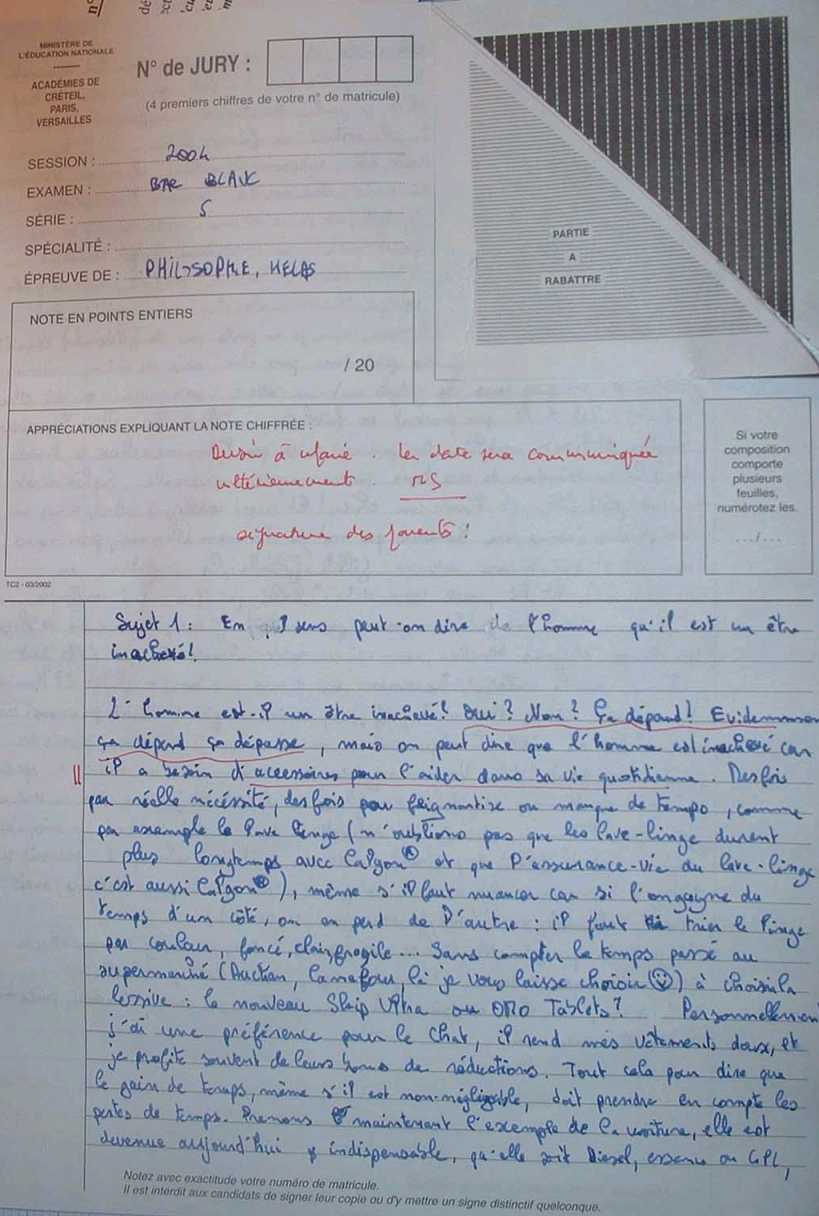 MINISTÈRE DE
L'ÉDUCATION NATIONALE
ACADÉMIES DE
CRÉTEIL,
PARIS,
VERSAILLES
N° de JURY :
(4 premiers chiffres de votre n° de matricule)
SESSION : 2004
EXAMEN : BAC BLANC
SÉRIE : S
SPÉCIALITÉ :
ÉPREUVE DE : PHILOSOPHIE, HELAS
PARTIE
A
RABATTRE
NOTE EN POINTS ENTIERS
/ 20
APPRÉCIATIONS EXPLIQUANT LA NOTE CHIFFRÉE :
Devoir à refaire. La date sera communiquée
ultérieurement
signature des parents !
Si votre
composition
comporte
plusieurs
feuilles,
numérotez les.
.../...
TC2 - 03/2002
Sujet 1 : En quel sens peut-on dire de l'homme qu'il est un être
inachevé !
L'homme est-il un être inachevé ? Oui ? Non ? Ça dépend ! Evidemment
ça dépend ça dépasse, mais on peut dire que l'homme est inachevé car
il a besoin d'accessoires pour l'aider dans sa vie quotidienne. Des fois
par réelle nécessité, des fois par feignantise ou manque de temps, comme
par exemple le lave linge (n'oublions pas que les lave-linge durent
plus longtemps avec Calgon® et que l'assurance-vie du lave-linge
c'est aussi Calgon®), même s'il faut nuancer car si l'on gagne du
temps d'un côté, on en perd de l'autre : il faut trier le linge
par couleur, foncé, clair, fragile... Sans compter le temps passé au
supermarché (Auchan, Carrefour, là je vous laisse choisir ☺) à choisir la
lessive : le nouveau Skip Ultra ou OMO Tablets ? Personnellement
j'ai une préférence pour le Chat, il rend mes vêtements doux, et
je profite souvent de leurs bons de réductions. Tout cela pour dire que
le gain de temps, même s'il est non-négligeable, doit prendre en compte les
pertes de temps. Prenons maintenant l'exemple de la voiture, elle est
devenue aujourd'hui indispensable, qu'elle soit Diesel, essence ou GPL,
Notez avec exactitude votre numéro de matricule.
Il est interdit aux candidats de signer leur copie ou d'y mettre un signe distinctif quelconque.